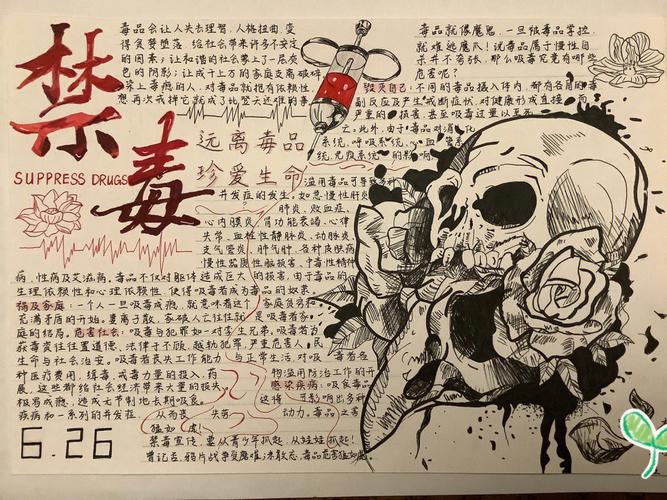 禁毒
SUPPRESS DRUGS
毒品会让人失去理智,人格扭曲,变
得贪婪堕落,给社会带来许多不安定
的因素;让和谐的社会蒙上了一层灰
色的阴影;让成千上万的家庭支离破碎
染上毒瘾的人,对毒品就抱有依赖性,
想再次戒掉它就成了比登天还难的事
毒品就像魔鬼,一旦被毒品掌控,
就难逃魔爪!说毒品属于慢性自
杀并不夸张,那么吸毒究竟有哪些
危害呢?
毁灭自己:不同的毒品摄入体内,都有各自的毒
副反应及产生戒断症状,对健康形成直接而
严重的损害,甚至吸毒过量以至死
亡;此外,由于毒品对消化
系统,呼吸系统,心血管系
统,免疫系统的影响
远离毒品
珍爱生命
滥用毒品可导致多种
并发症的发生,如急慢性肝炎
肝炎,败血症,
心内膜炎,肾功能衰竭,心律
失常,血栓性静脉炎,动脉炎
支气管炎,肺气肿,各种皮肤病
慢性器质性脑损害,中毒性精神
病,性病及艾滋病。毒品不仅对躯体造成巨大的损害,由于毒品的
生理依赖性和心理依赖性,使得吸毒者成为毒品的奴隶
祸及家庭:一个人一旦吸毒成瘾,就意味着这个家庭贫穷和
充满矛盾的开始。妻离子散,家破人亡往往就是吸毒者家
庭的结局。危害社会:吸毒与犯罪如一对孪生兄弟,吸毒者为
获毒资往往置道德、法律于不顾,越轨犯罪,严重危害人民
生命与社会治安。吸毒者丧失工作能力与正常生活,对吸毒者各
种医疗费用,缉毒,戒毒力量的投入,药物滥用防治工作的开
展,这些都给社会经济带来大量的损失。感染疾病:吸食毒品
极易成瘾,造成无节制地长期吸食。这将可影响出多种
疾病和一系列的并发症,从而丧失劳动力。毒品之害
猛如虎!
禁毒宣传,要从青少年抓起,从娃娃抓起!
曾记否,鸦片战争受磨难,决敢忘,毒品危害猛如虎。
6.26